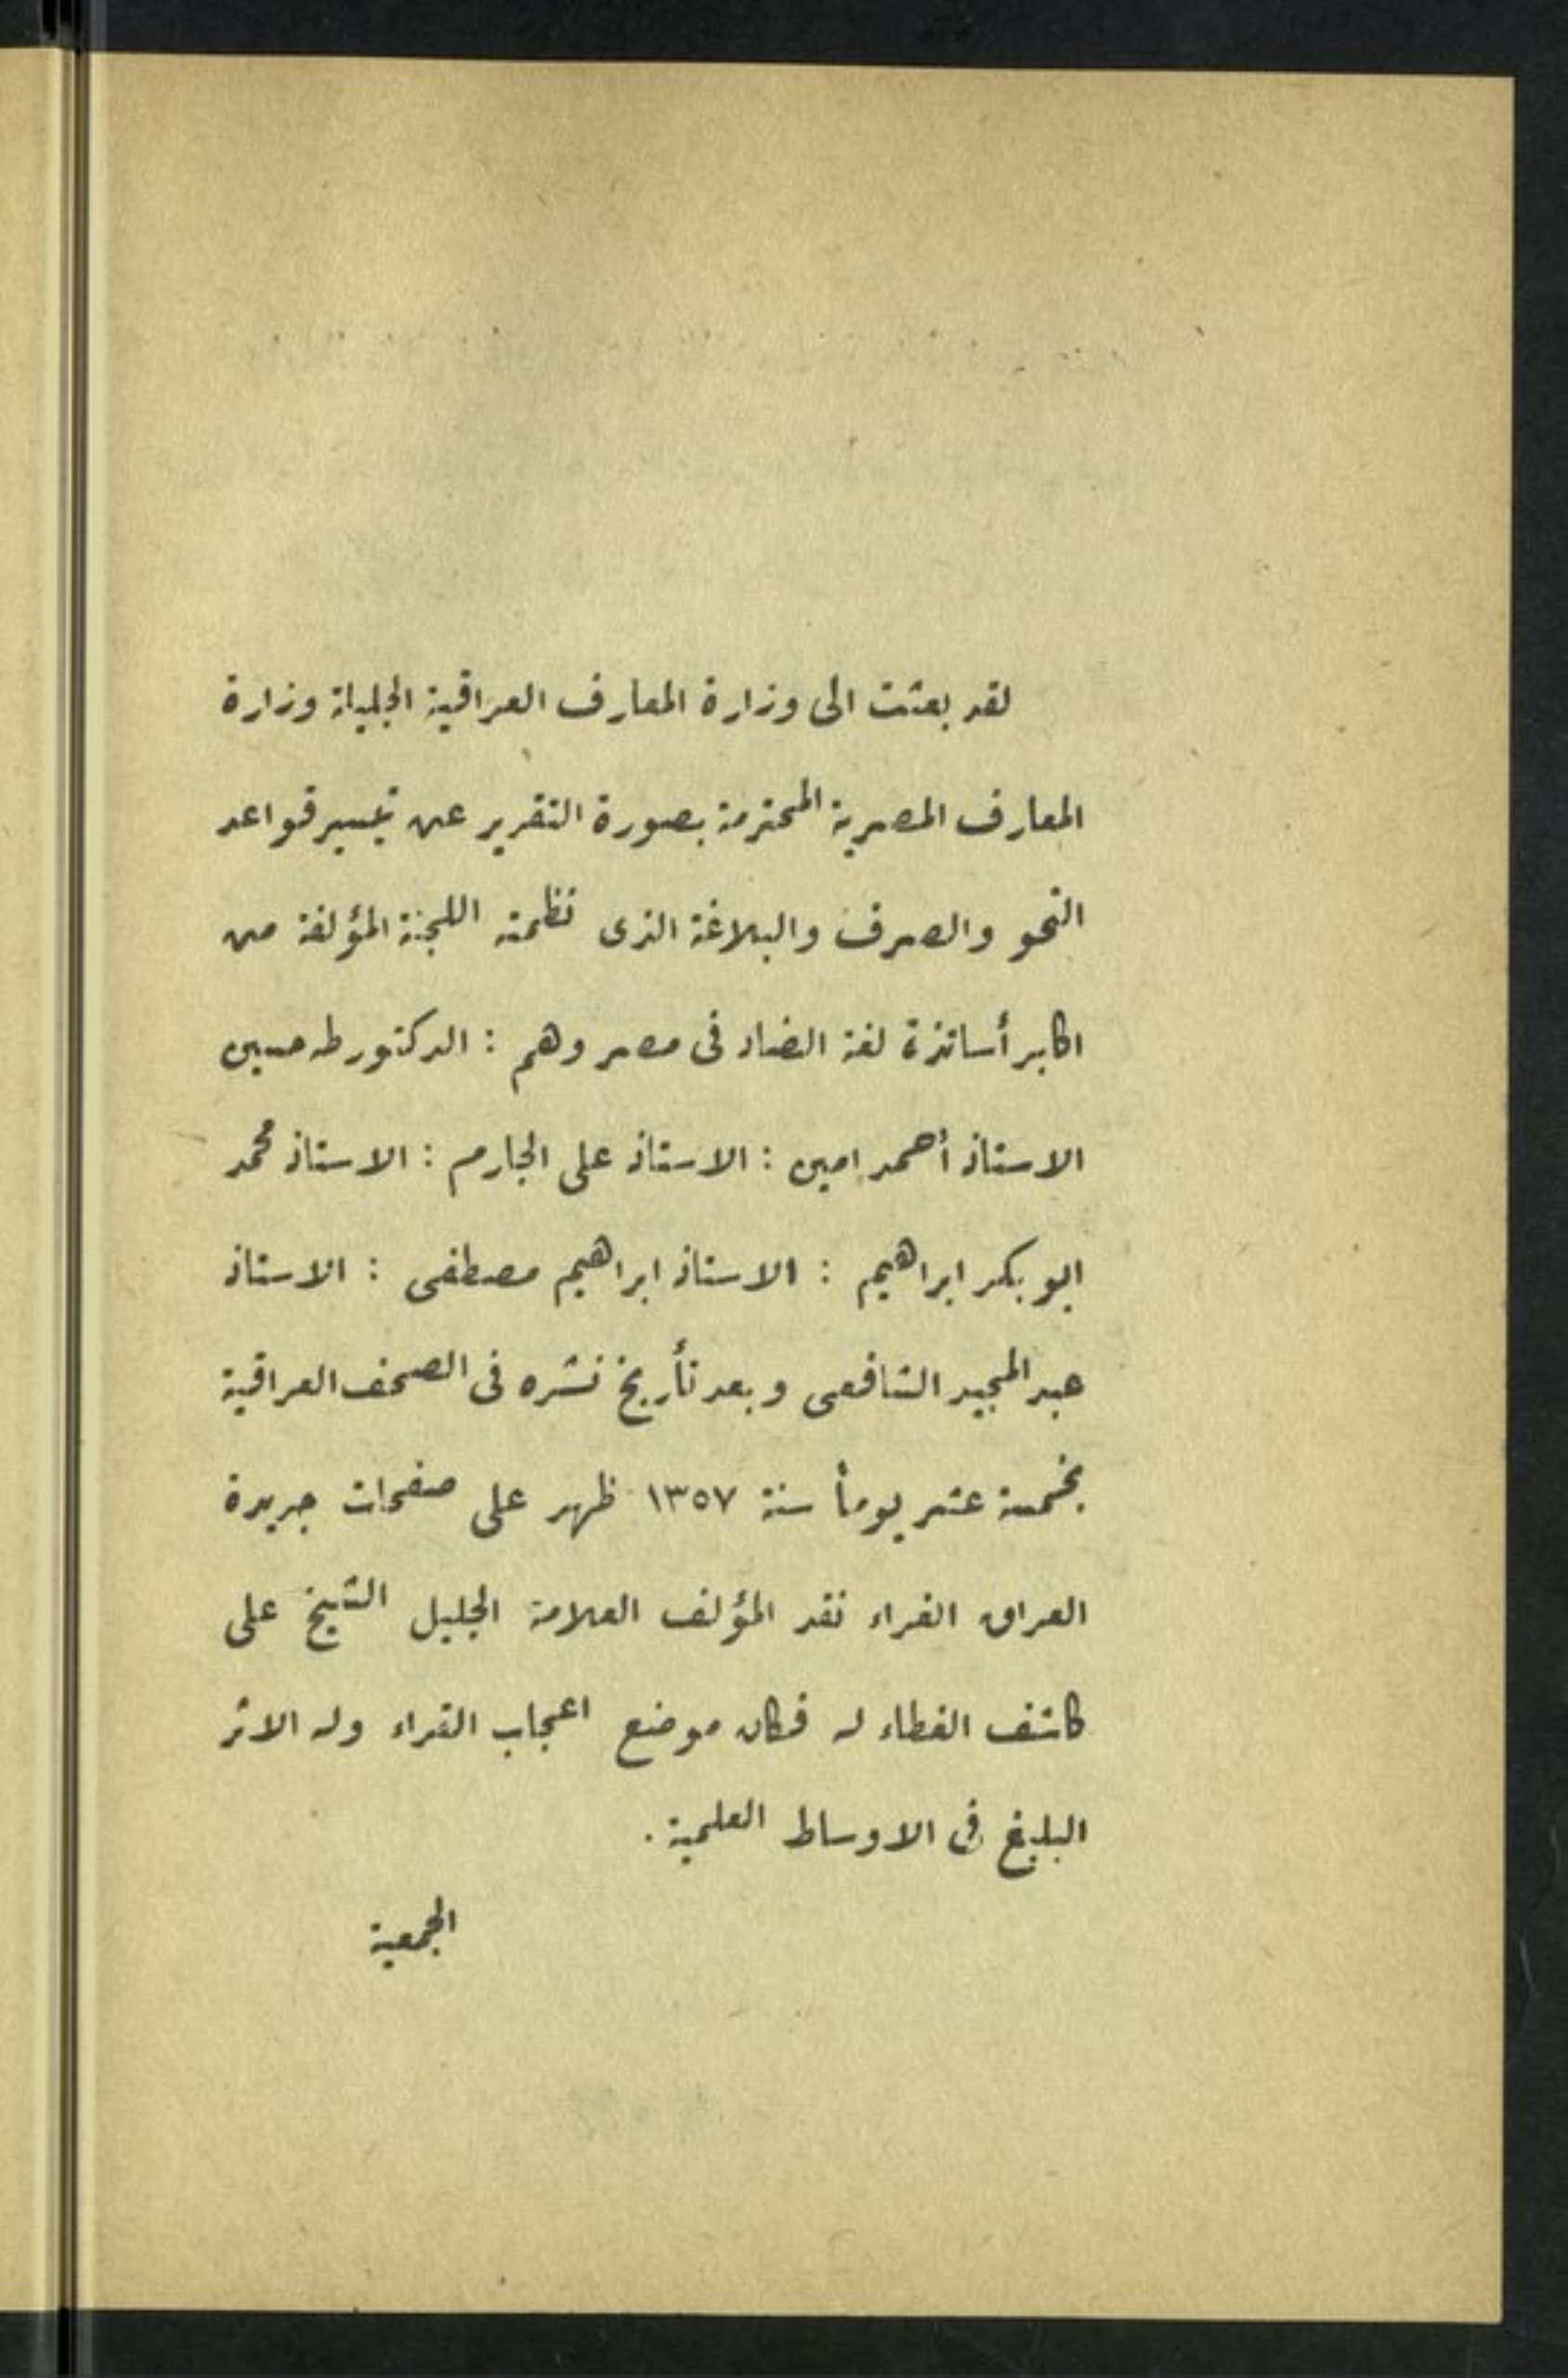 لقد بعثت الى وزارة المعارف العراقية الجليلة وزارة
المعارف المصرية المحترمة بصورة التقرير عن تيسير قواعد
النحو والصرف والبلاغة الذى نظمته اللجنة المؤلفة من
اكابر أساتذة لغة الضاد فى مصر وهم : الدكتور طه حسين
الاستاذ أحمد امين : الاستاذ على الجارم : الاستاذ محمد
ابو بكر ابراهيم : الاستاذ ابراهيم مصطفى : الاستاذ
عبد المجيد الشافعى وبعد تأريخ نشره فى الصحف العراقية
بخمسة عشر يوماً سنة ١٣٥٧ ظهر على صفحات جريدة
العراق الغراء نقد المؤلف العلامة الجليل الشيخ على
كاشف الغطاء له فكان موضع اعجاب القراء وله الاثر
البليغ في الاوساط العلمية .
الجمعية